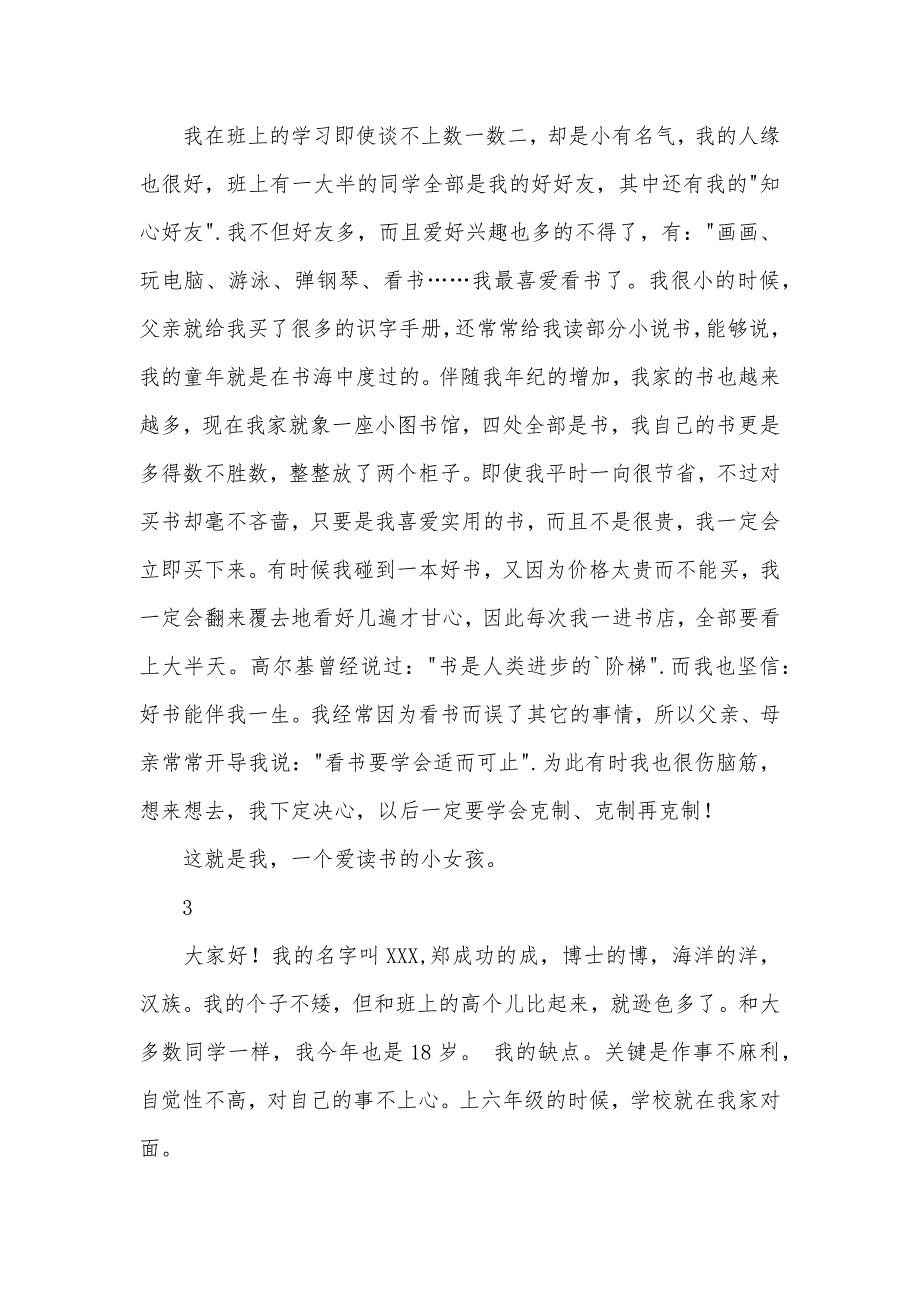 我在班上的学习即使谈不上数一数二，却是小有名气，我的人缘
也很好，班上有一大半的同学全部是我的好好友，其中还有我的"知
心好友".我不但好友多，而且爱好兴趣也多的不得了，有："画画、
玩电脑、游泳、弹钢琴、看书……我最喜爱看书了。我很小的时候，
父亲就给我买了很多的识字手册，还常常给我读部分小说书，能够说，
我的童年就是在书海中度过的。伴随我年纪的增加，我家的书也越来
越多，现在我家就象一座小图书馆，四处全部是书，我自己的书更是
多得数不胜数，整整放了两个柜子。即使我平时一向很节省，不过对
买书却毫不吝啬，只要是我喜爱实用的书，而且不是很贵，我一定会
立即买下来。有时候我碰到一本好书，又因为价格太贵而不能买，我
一定会翻来覆去地看好几遍才甘心，因此每次我一进书店，全部要看
上大半天。高尔基曾经说过："书是人类进步的`阶梯".而我也坚信：
好书能伴我一生。我经常因为看书而误了其它的事情，所以父亲、母
亲常常开导我说："看书要学会适而可止".为此有时我也很伤脑筋，
想来想去，我下定决心，以后一定要学会克制、克制再克制！
这就是我，一个爱读书的小女孩。
3
大家好！我的名字叫 XXX,郑成功的成，博士的博，海洋的洋，
汉族。我的个子不矮，但和班上的高个儿比起来，就逊色多了。和大
多数同学一样，我今年也是 18 岁。 我的缺点。关键是作事不麻利，
自觉性不高，对自己的事不上心。上六年级的时候，学校就在我家对
面。